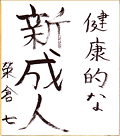 健康的な
新成人
榮倉七